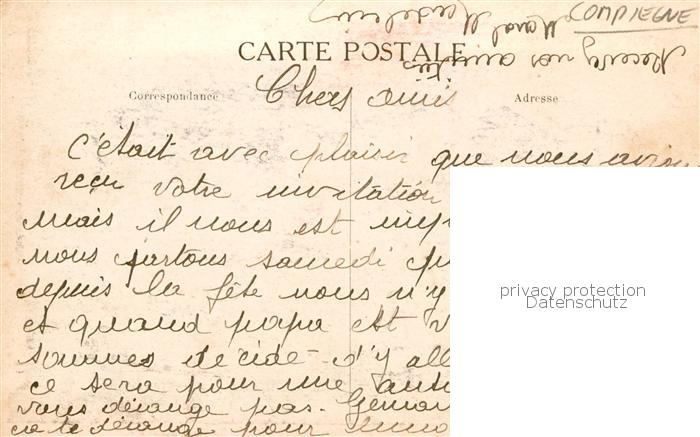 COMPIEGNE
Recevez nos
CARTE POSTALE
Correspondance
Adresse
Chers amis
C'était avec plaisir que nous avion
reçu votre invitation
mais il nous est imp
nous partons samedi
depuis la fête nous n'y
et quand papa est v
sommes décidé d'y all
ce sera pour une aut
vous dérange pas.
privacy protection
Datenschutz